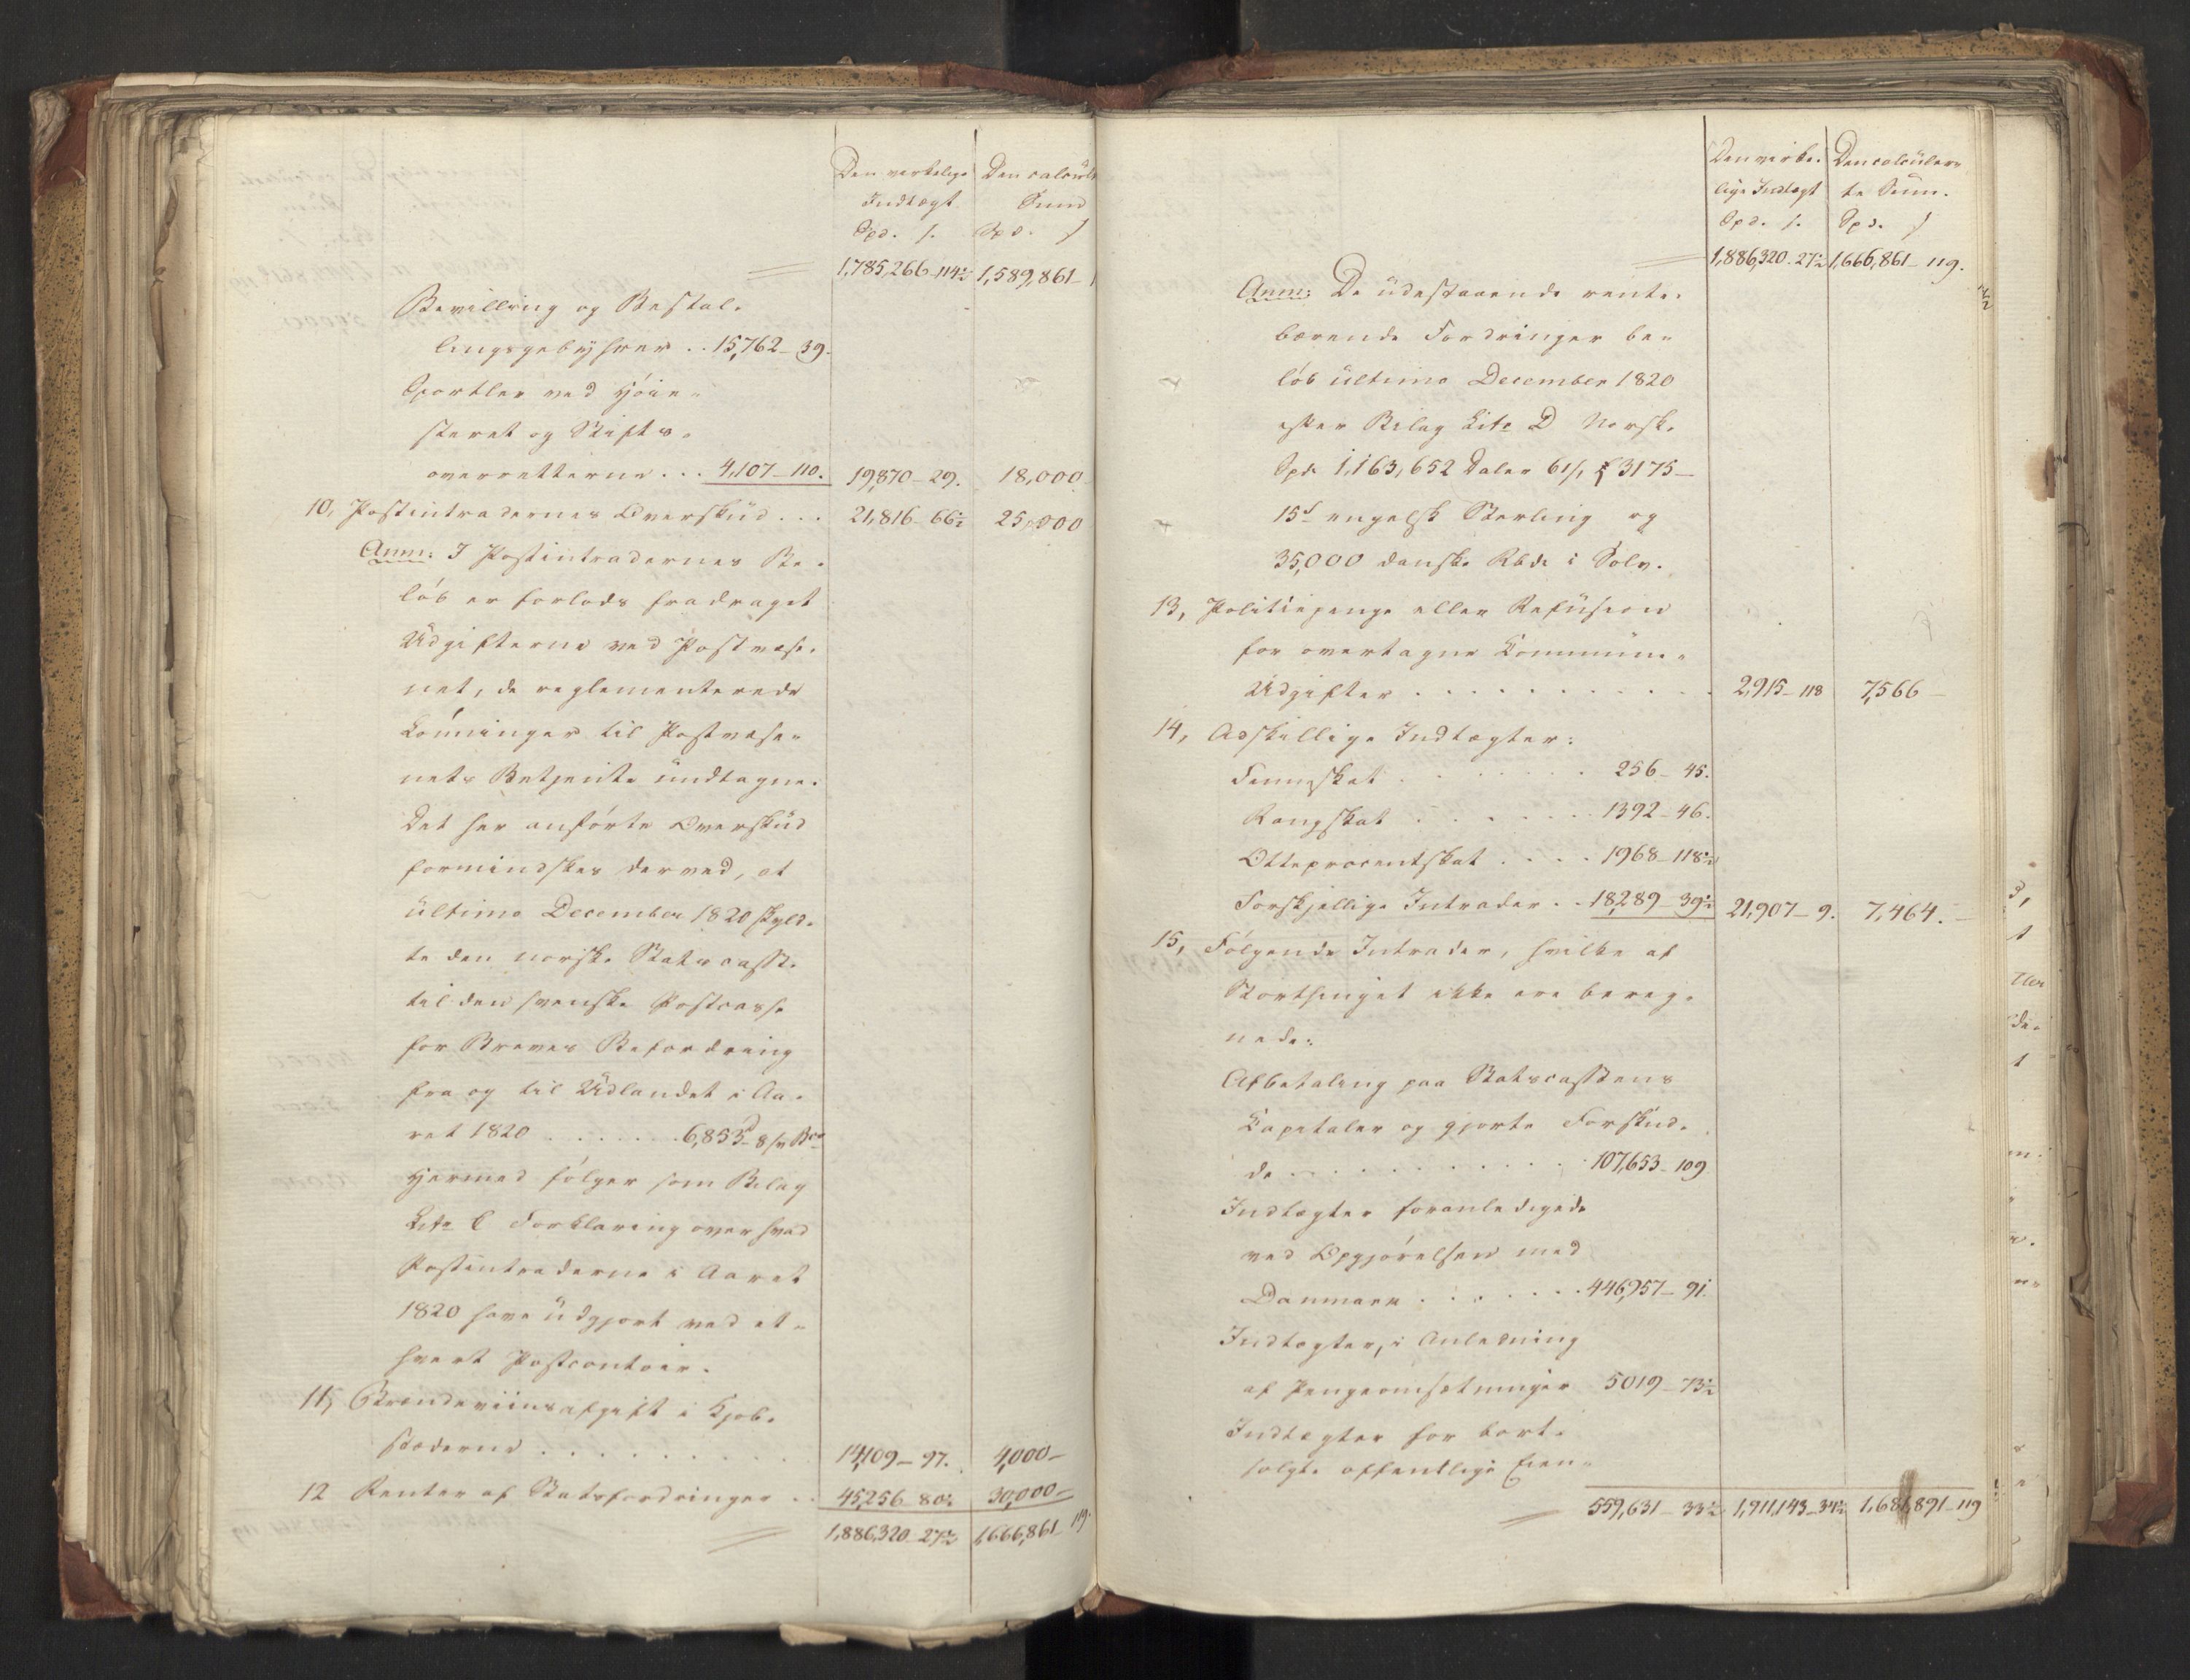 Den virkelige Den calculerte
Indtægt Sum
Spd. s. Spd. s
1,785,266-114½ 1,589,861-
Bevilling og Bestal-
lingsgebyhrer .. 15,762-39.
Sportler ved Høie-
steret og Stifts-
overretterne ... 4,107-110. 19,870-29. 18,000
10, Postintradernes Overskud ... 21,816-66½ 25,000
Anm: I Postintradernes Be-
løb er forlods fradraget
Udgifterne ved Postvæse-
net, de reglementerede
Lønninger til Postvæse-
nets Betjente undtagne.
Det her anførte Overskud
formindskes derved, at
ultimo December 1820 skyld-
te den norske Statscasse
til den svenske Postcasse
for Breves Befordring
fra og til Udlandet i Aa-
ret 1820 ....... 6,853d-8s Bco
Hermed følger som Bilag
Litr C Forklaring over hvad
Postintraderne i Aaret
1820 have udgjort ved et-
hvert Postcontoir.
11, Brændeviinsafgift i Kjøb-
stæderne ......... 14,109-97. 4,000-
12 Renter af Statsfordringer .. 45,256-80½ 30,000-
1,886,320-27½ 1,666,861-119.
Den virke- Den calculer-
lige Indtægt te Sum.
Spd. s. Spd. s
1,886,320-27½ 1,666,861-119.
Anm: De udestaaende rente-
bærende Fordringer be-
løb ultimo December 1820
efter Bilag Litr D Norsk.
Spd. 1,163,652 Daler 61s, £ 3175-
15s engelsk Sterling og
35,000 danske Rbd. i Sølv.
13, Politiepenge eller Refusion
for overtagne Kommune-
Udgifter ........... 2,915-118 7,566-
14, Adskillige Indtægter:
Finneskat ....... 256-45.
Rangskat ...... 1392-46.
Otteprocentskat .... 1968-118½
Forskjellige Intrader .. 18,289-39½ 21,907-9. 7,464.-
15, Følgende Intrader, hvilke af
Storthinget ikke ere bereg-
nede:
Afbetaling paa Statscassens
Kapitaler og gjorte Forskud-
de ........... 107,653-109
Indtægter foranledigede
ved Opgjørelsen med
Danmark ....... 446,957-91.
Indtægter, i Anledning
af Pengeomsætninger 5019-73½
Indtægter for bort-
solgte offentlige Eien-
559,631-33½ 1,911,143-34½ 1,681,891-119